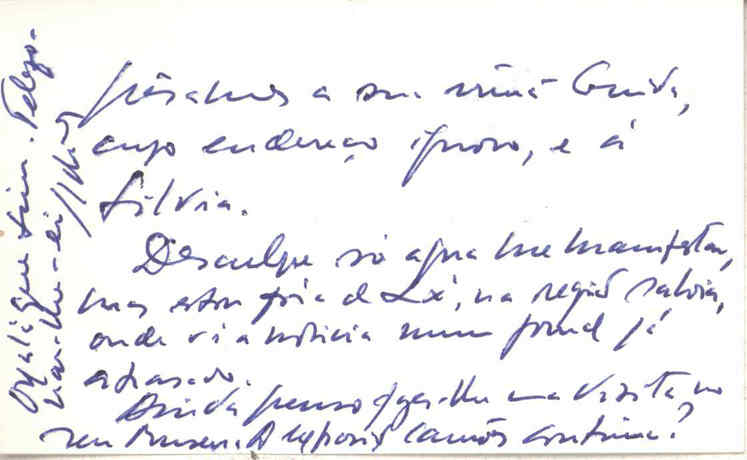 pêsames a sua irmã Guida,
cujo endereço ignoro, e à
Sílvia.
Desculpe só agora me manifestar,
mas estou fora de Lx, na região saloia,
onde vi a notícia num jornal já
atrasado.
Ainda penso fazer-lhe uma visita no
seu Museu. A exposição Camões continua?
Oxalá que sim. Telefo-
nar-lhe-ei